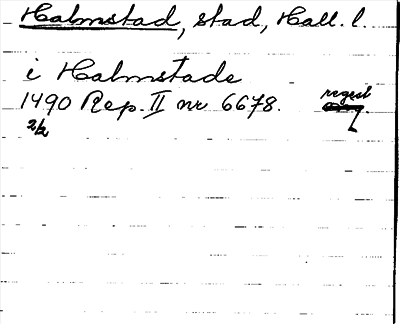 Halmstad, stad, Hall. l.
i Halmstade
1490 Rep. II nr 6678. regest
2/2